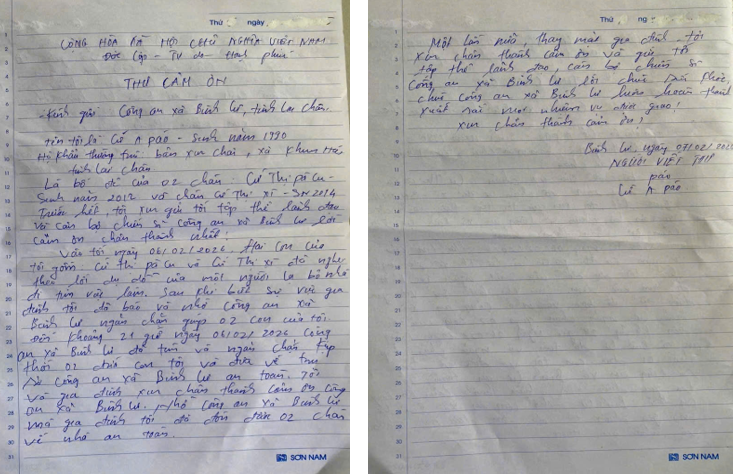 Thứ ngày
CỘNG HÒA XÃ HỘI CHỦ NGHĨA VIỆT NAM
Độc lập - Tự do - Hạnh phúc
THƯ CẢM ƠN
Kính gửi: Công an xã Bình Lư, tỉnh Lai Châu.
Tên tôi là Cứ A páo - Sinh năm 1990
Hộ khẩu thường trú: bản xin chải, xã Khun Há,
tỉnh lai châu
Là bố đẻ của 02 cháu Cứ Thị pà Cu -
Sinh năm 2012 và cháu Cứ Thị Xí - SN 2014
Trước hết, tôi xin gửi tới tập thể lãnh đạo
và cán bộ chiến sĩ công an xã Bình Lư lời
cảm ơn chân thành nhất!
Vào tối ngày 06/02/2026 Hai con của
tôi gồm Cứ thị pà Cu và Cứ Thị Xí đã nghe
theo lời dụ dỗ của một người lạ bỏ nhà
đi tìm việc làm. Sau khi biết sự việc gia
đình tôi đã báo và nhờ Công an xã
Bình Lư ngăn chặn giúp 02 con của tôi
Đến khoảng 21 giờ ngày 06/02/2026 Công
an xã Bình Lư đã tìm và ngăn chặn kịp
thời 02 đứa con tôi và đưa về trụ
sở công an xã Bình Lư an toàn. Tôi
và gia đình xin chân thành cảm ơn Công
an xã Bình Lư. Nhờ công an xã Bình Lư
mà gia đình tôi đã đón được 02 cháu
về nhà an toàn.
SƠN NAM
Thứ ng
Một lần nữa, thay mặt gia đình tôi
xin chân thành cảm ơn và gửi tới
tập thể lãnh đạo, cán bộ chiến sĩ
Công an xã Bình Lư lời chúc sức khỏe,
chúc Công an xã Bình Lư luôn hoàn thành
xuất sắc mọi nhiệm vụ được giao!
Xin chân thành cảm ơn!
Bình Lư, ngày 07/02/2026
NGƯỜI VIẾT THƯ
páo
Cứ A páo
SƠN NAM